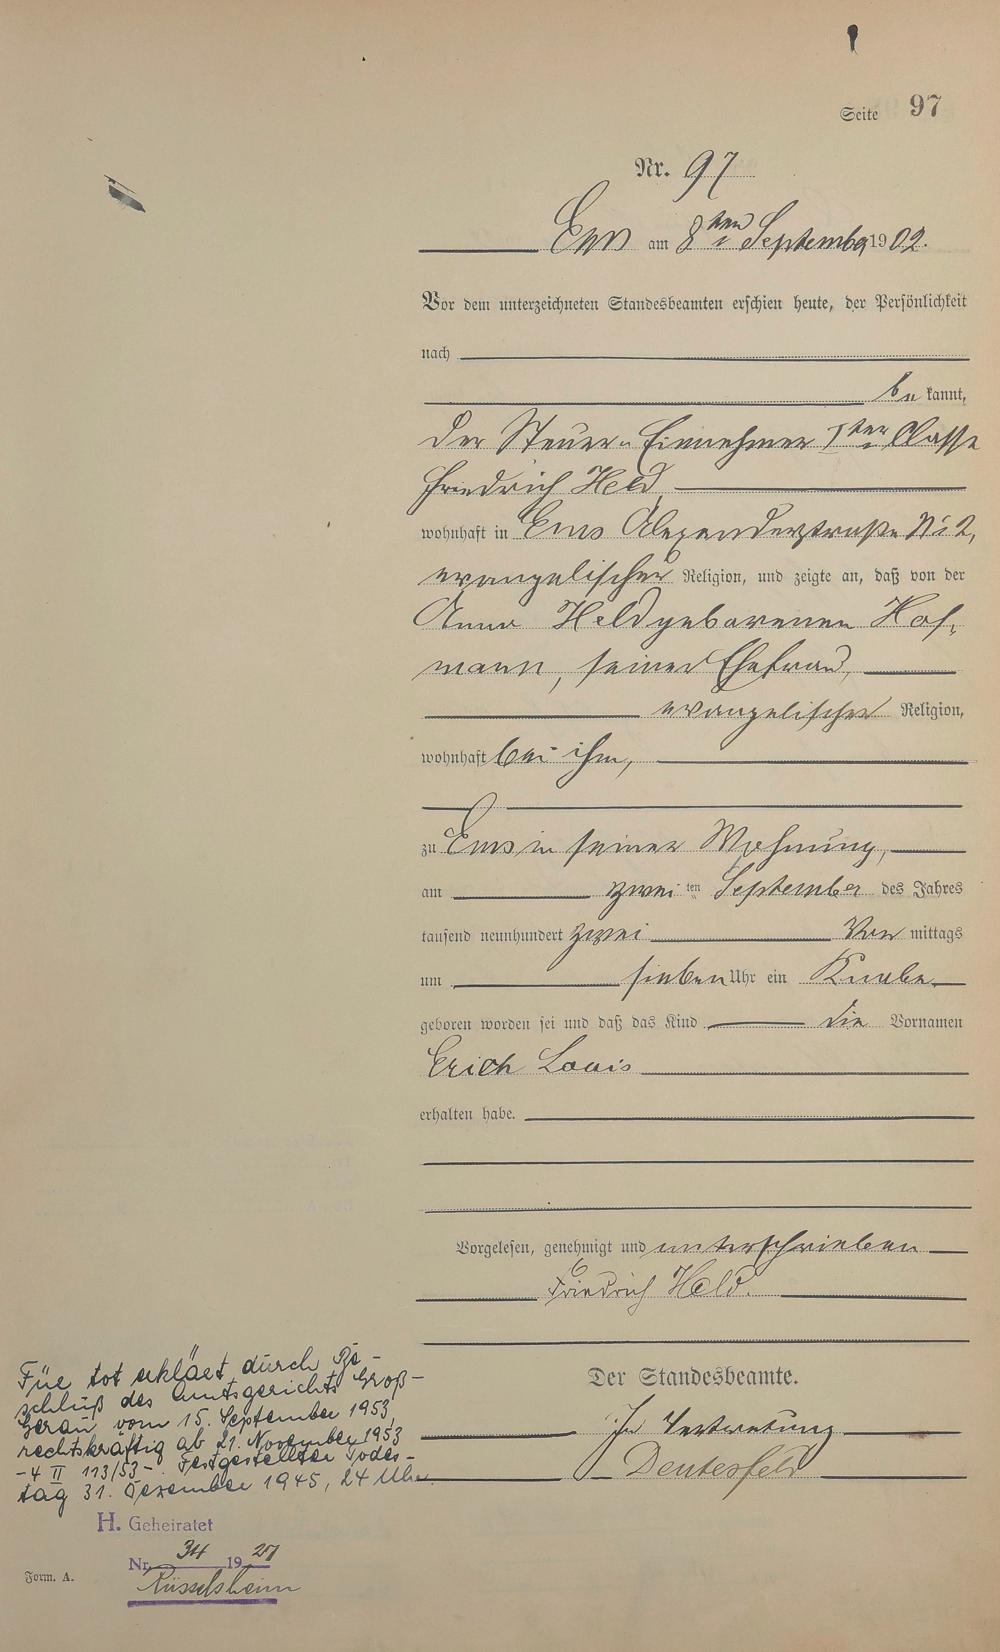 Seite 97
Nr. 97
Ems am 8ten September 1902.
Vor dem unterzeichneten Standesbeamten erschien heute, der Persönlichkeit
nach
be kannt,
der Steuer-Einnehmer Iter Classe
Friedrich Held
wohnhaft in Ems Alexanderstraße No 2,
evangelischer Religion, und zeigte an, daß von der
Anna Held geborenen Hof-
mann, seiner Ehefrau,
evangelischer Religion,
wohnhaft bei ihm,
zu Ems in seiner Wohnung,
am zwei ten September des Jahres
tausend neunhundert zwei Vor mittags
um sieben Uhr ein Knabe
geboren worden sei und daß das Kind die Vornamen
Erich Louis
erhalten habe.
Vorgelesen, genehmigt und unterschrieben
Friedrich Held.
Der Standesbeamte.
In Vertretung
Deutesfeld
Für tot erklärt durch Be-
schluß des Amtsgerichts Groß-
Gerau vom 15. September 1953,
rechtskräftig ab 21. November 1953
-4 II 113/53-. Festgestellter Todes-
tag 31. Dezember 1945, 24 Uhr.
H. Geheiratet
Nr. 34 19 27
Rüsselsheim
Form. A.